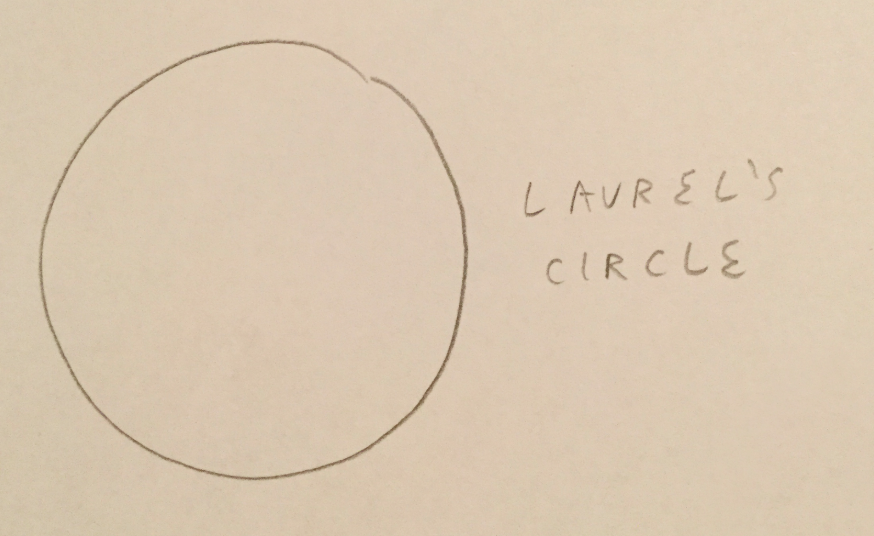 LAUREL'S
CIRCLE